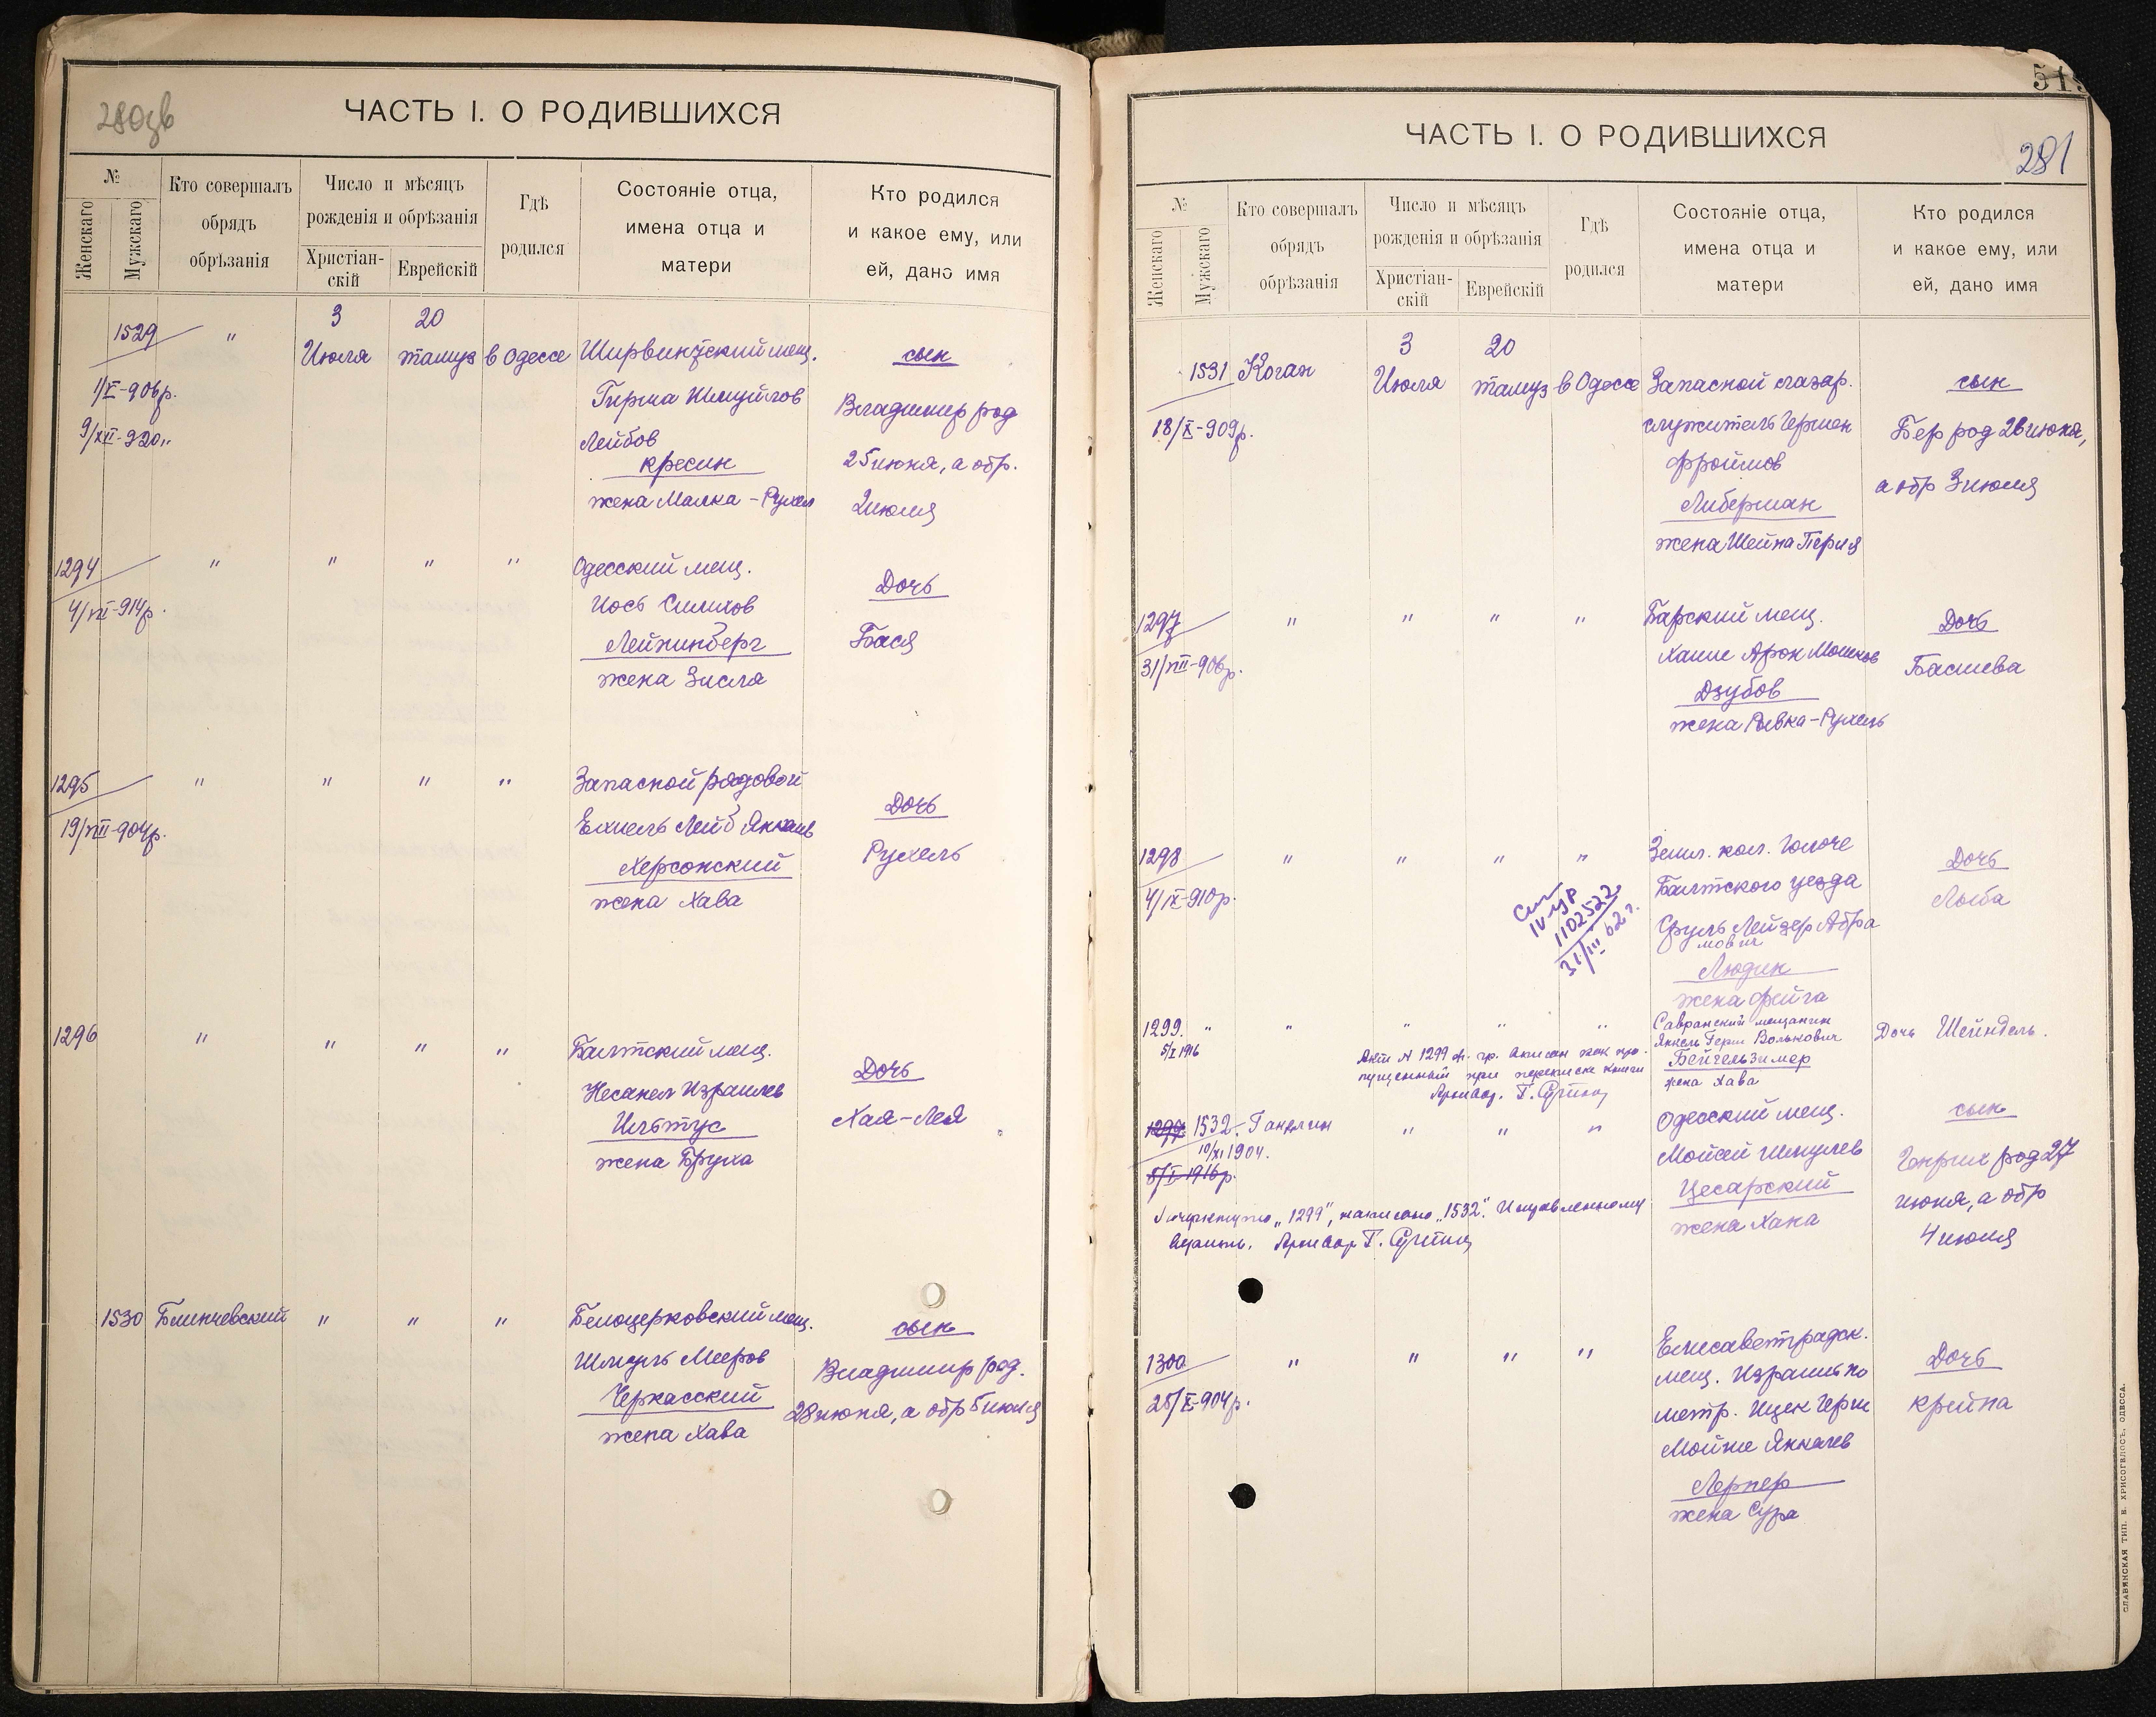 280зв
ЧАСТЬ I. О РОДИВШИХСЯ
№
Женскаго
Мужскаго
Кто совершалъ
обрядъ
обрѣзанія
Число и мѣсяцъ
рожденія и обрѣзанія
Христіан-
скій
Еврейскій
Гдѣ
родился
Состояніе отца,
имена отца и
матери
Кто родился
и какое ему, или
ей, дано имя
1529 " 3 20
Июля тамуз в Одессе Ширвинтский мещ. сын
1/X-906р.
9/XII-920"
Гирша Шмуйлов
Лейбов
Кресин
жена Малка-Рухел
Владимир род
25 июня, а обр.
2 июля
1294 " " " " Одесский мещ. Дочь
4/VII-914р.
Иось
Лейнинберг
жена Зисля
Бася
1295 " " " " Запасной рядовой Дочь
19/VIII-904р.
Ехиель Лейб Янкелев
Херсонский
жена Хава
Рухель
1296 " " " " Балтский мещ. Дочь
Несанел Израилев
Ильтус
жена Бруха
Хая-Лея
1530 Блинчевский " " " Белоцерковский мещ. сын
Шмуль Мееров
Черкасский
жена Хава
Владимир род.
28 июня, а обр 5 июля
51
ЧАСТЬ I. О РОДИВШИХСЯ
281
№
Женскаго
Мужскаго
Кто совершалъ
обрядъ
обрѣзанія
Число и мѣсяцъ
рожденія и обрѣзанія
Христіан-
скій
Еврейскій
Гдѣ
родился
Состояніе отца,
имена отца и
матери
Кто родился
и какое ему, или
ей, дано имя
1531 Коган 3 20
Июля тамуз в Одессе Запасной лазар. сын
18/X-909р.
служитель Гершен
Фроймов
Либерман
жена Шейна Перля
Бер род 26 июня,
а обр 3 июля
1297 " " " " Барский мещ. Дочь
31/VIII-906р.
Хаим Арон Мошков
Дзубов
жена Ривка-Рухель
Басшева
1298 " " " " Земл. кол. Дочь
4/IX-910р.
1102522
31/III 62 г.
Балтского уезда
Сруль Лейзер Абра
мович
Людин
жена Фейга
Люба
1299. " " " " " Савранский мещанин Дочь Шейндель.
5/I 1916
Янкель Герш Волькович
Бейгельзимер
жена Хава
Акт № 1299 ж. гр. вписан как про-
пущенный при переписке книги
Архивар. Г.
1299 1532. Гандлин " " " Одесский мещ. сын
10/XI 1904.
5/I 1916р.
Мойсей Шмулев
Цесарский
жена Хана
Генрих род 27
июня, а обр
4 июля
Зачеркнуто "1299", написано "1532". Исправленному
верить. Архивар Г.
1300 " " " " Елисаветградск. Дочь
25/X-904р.
мещ. Израиль по
метр. Ицек Герш
Мойше Янкелев
Лернер
жена Сура
Крейна
СЛАВЯНСКАЯ ТИП. Е. ХРИСОГЕЛОСЪ, ОДЕССА.